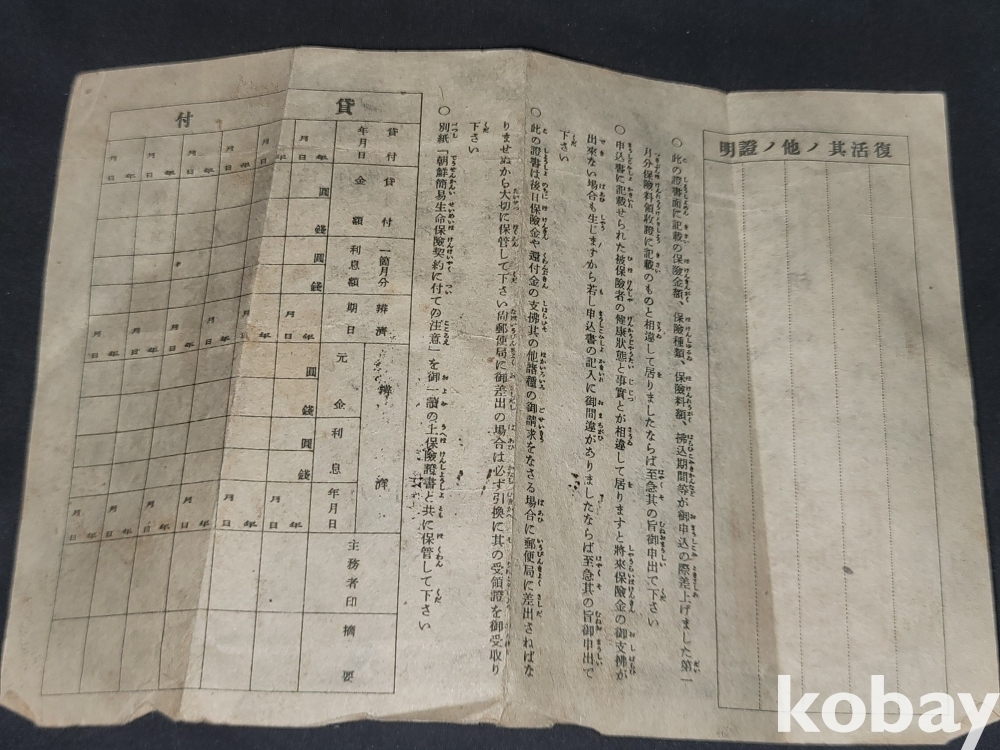 復活其ノ他ノ證明
○此の證書面に記載の保險金額、保險種類、保險料額、拂込期間等が御申込の際差上げました第一
月分保險料領收證に記載のものと相違して居りましたならば至急其の旨御申出で下さい
○申込書に記載せられた被保險者の健康狀態と事實とが相違して居りますと將來保險金の御支拂が
出來ない場合も生じますから若し申込書の記入に御間違がありましたならば至急其の旨御申出で
下さい
○此の證書は後日保險金や還付金の支拂其の他諸種の御請求をなさる場合に郵便局に差出さねばな
りませぬから大切に保管して下さい尙郵便局に御差出の場合は必ず引換に其の受領證を御受取り
下さい
○別紙「朝鮮簡易生命保險契約に付ての注意」を御一讀の上保險證書と共に保管して下さい
貸付
貸付年月日
貸付金額
一箇月分利息額
辨濟期日
辨濟
元金
利息
年月日
主務者印
摘要
年月日
圓錢
圓錢
年月日
圓錢
圓錢
年月日
年月日
年月日
年月日
年月日
年月日
年月日
年月日
年月日
年月日
年月日
年月日
年月日
kobay